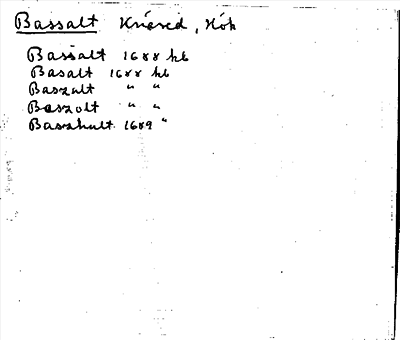 Bassalt Knäred, Hök
Bassalt 1688 kb
Basalt 1688 kb
Baszalt " "
Baszolt " "
Baszhult 1689 "